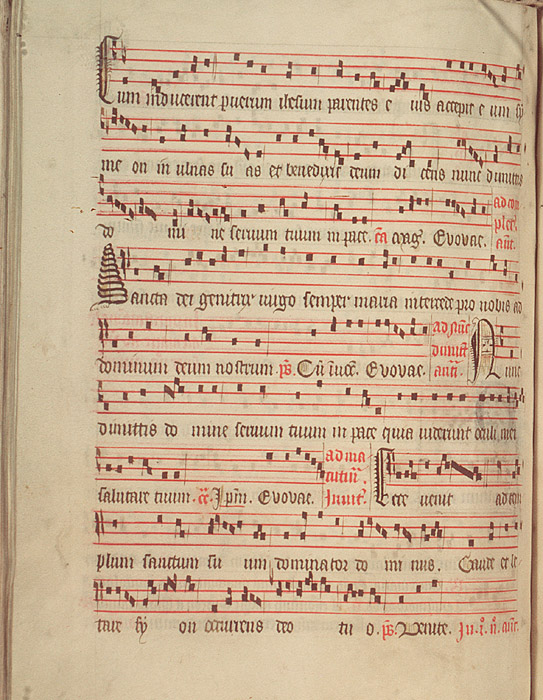 Cum inducerent puerum ihesum parentes e ius accepit e um sy
me on in ulnas su as et benedixit deum di cens nunc dimittis
ad com
do mi ne servum tuum in pace. Evovae. plet.
Sancta dei genitrix virgo semper maria intercede pro nobis ad
ad nunc
dominum deum nostrum. ps. Evovae. dimitt. Nunc
dimittis do mine servum tuum in pace quia viderunt oculi mei
ad ma
salutare tuum. Evovae. Invit. Ecce venit ad tem
plum sanctum su um dominator do mi nus. Gaude et le
tare sy on occurrens deo tu o. ps. Venite.